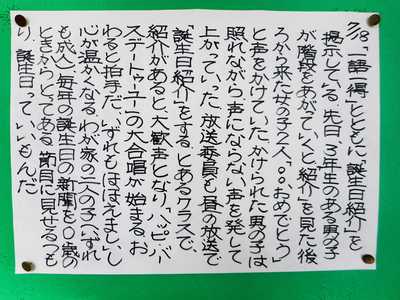 7/18「一語一得」とともに「誕生日紹介」を
掲示している。先日、3年生のある男の子
が階段をあがっていくと「紹介」を見た後
ろから来た女の子2人、「○○、おめでとう」
と声をかけていた。かけられた男の子は
照れながら声にならない声を発して
上がっていった。放送委員も昼の放送で
「誕生日紹介」をする。とあるクラスで
紹介があると、大歓声となり、「ハッピーバー
スデートゥーユー」の大合唱が始まる。お
わると拍手だ。いずれもほほえましいし
心が温かくなる。わが家の二人の子(いずれ
も成人)毎年の誕生日の新聞を〇歳の
ときからとってある。節目に見せるつも
り。誕生日っていいもんだ